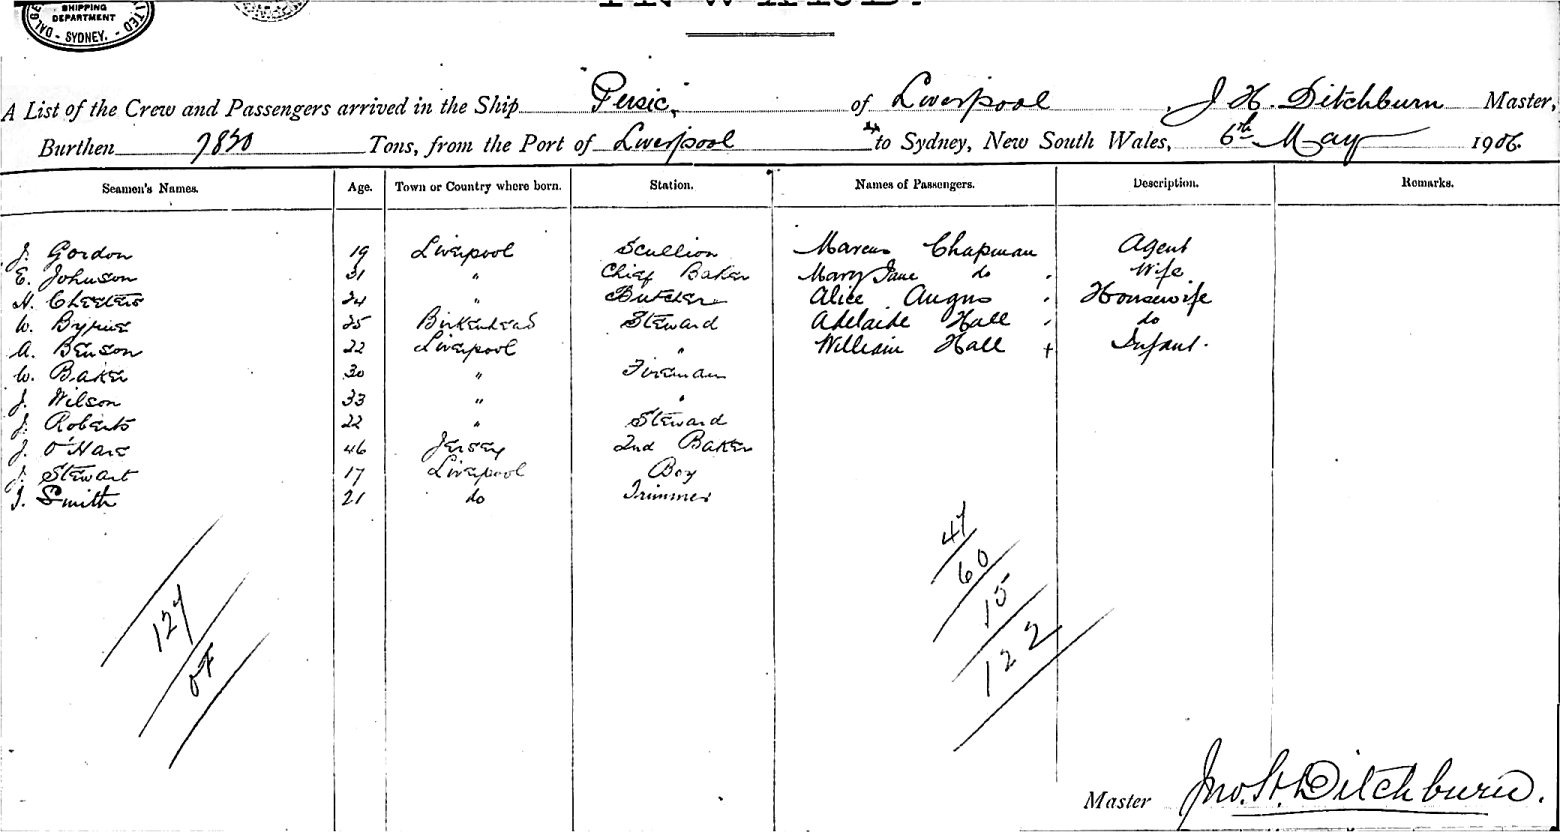 SHIPPING
DEPARTMENT
- SYDNEY. -
INWARD.
A List of the Crew and Passengers arrived in the Ship Persic, of Liverpool, J H. Ditchburn Master,
Burthen 7830 Tons, from the Port of Liverpool to Sydney, New South Wales, 6th May 1906.
Seamen's Names. Age. Town or Country where born. Station. Names of Passengers. Description. Remarks.
J. Gordon 19 Liverpool Scullion Marcus Chapman Agent
E. Johnson 31 " Chief Baker Mary Jane do Wife
H. Cheeters 24 " Butcher Alice Angus Housewife
W. 25 Birkenhead Steward Adelaide Hall do
A. Benson 22 Liverpool " William Hall + Infant.
W. Baker 30 " Fireman
J. Wilson 33 " "
J. Roberts 22 " Steward
J. O'Hare 46 Jersey 2nd Baker
J. Stewart 17 Liverpool Boy
J. Smith 21 do Trimmer
47
60
15
122
127
Master Jno. H. Ditchburn.